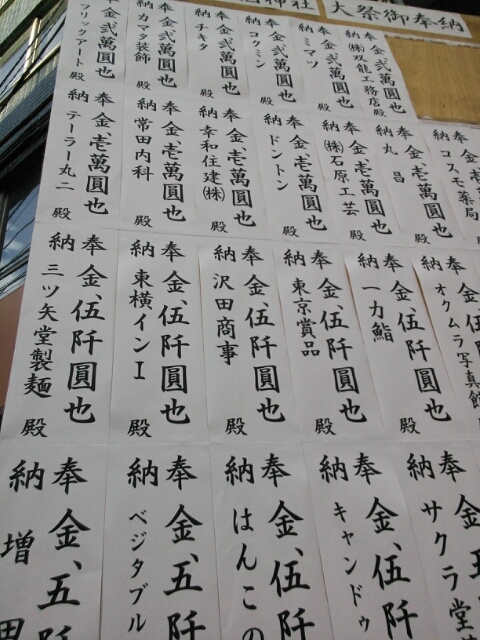 神社
大祭御奉納
奉納
金、弐萬圓也
(株)双龍工務店殿
奉納
金、弐萬圓也
ミマツ
殿
奉納
金、弐萬圓也
コクミン
殿
奉納
金、弐萬圓也
チキタ
殿
奉納
金、弐萬圓也
カマタ装飾
殿
奉納
金、弐萬圓也
フリックアート
殿
奉
納
コスモ薬局
奉納
金、壱萬圓也
丸昌
殿
奉納
金、壱萬圓也
(株)石原工芸
殿
奉納
金、壱萬圓也
ドントン
殿
奉納
金、壱萬圓也
幸和住建(株)
殿
奉納
金、壱萬圓也
常田内科
殿
奉納
金、壱萬圓也
テーラー丸二
殿
奉納
オクムラ写真館
奉納
金、伍阡圓也
一力鮨
殿
奉納
金、伍阡圓也
東京賞品
殿
奉納
金、伍阡圓也
沢田商事
殿
奉納
金、伍阡圓也
東横インI
殿
奉納
金、伍阡圓也
三ツ矢堂製麺
殿
奉納
金、伍阡
サクラ堂
奉納
金、伍阡
キャンドゥ
奉納
金、伍阡
はんこの
奉納
金、五阡
ベジタブル
奉納
金、五阡
増田